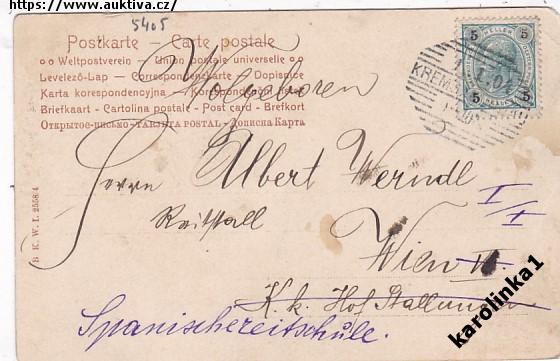 https://www.auktiva.cz/
5405
Postkarte — Carte postale
Weltpostverein — Union postale universelle
Levelező-Lap — Correspondenzkarte — Dopisnice
Karta korespondencyjna — Korespondenční
Briefkaart - Cartolina postale - Post card - Brefkort
Открытое-письмо - TARJETA POSTAL - Дописна Карта
5 HELLER 5
5 5
KREMS
Hochgeboren
Herrn Albert Werndl
Reitstall
Wien II
I/1
K. k. Hof Stallungen
Spanischereitschule.
B. K. W. I. 2558/4
karolinka1